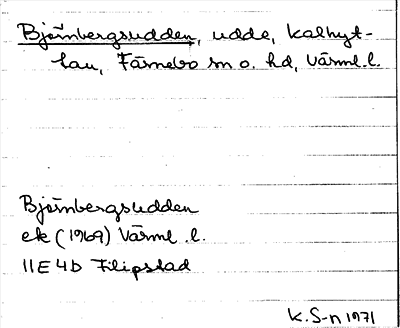 Björnbergsudden, udde, Kalhyt-
tan, Färnebo sn o. hd, Värml. l.
Björnbergsudden
ek (1969) Värml. l.
11E 4b Filipstad
K. S-n 1971